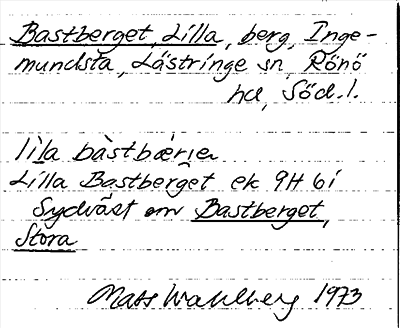 Bastberget, Lilla, berg, Inge-
mundsta, Lästringe sn, Rönö
hd, Söd. l.
lìla bàstbær̀jen
Lilla Bastberget ek 9H 6i
Sydväst om Bastberget,
Stora
Mats Wahlberg 1973